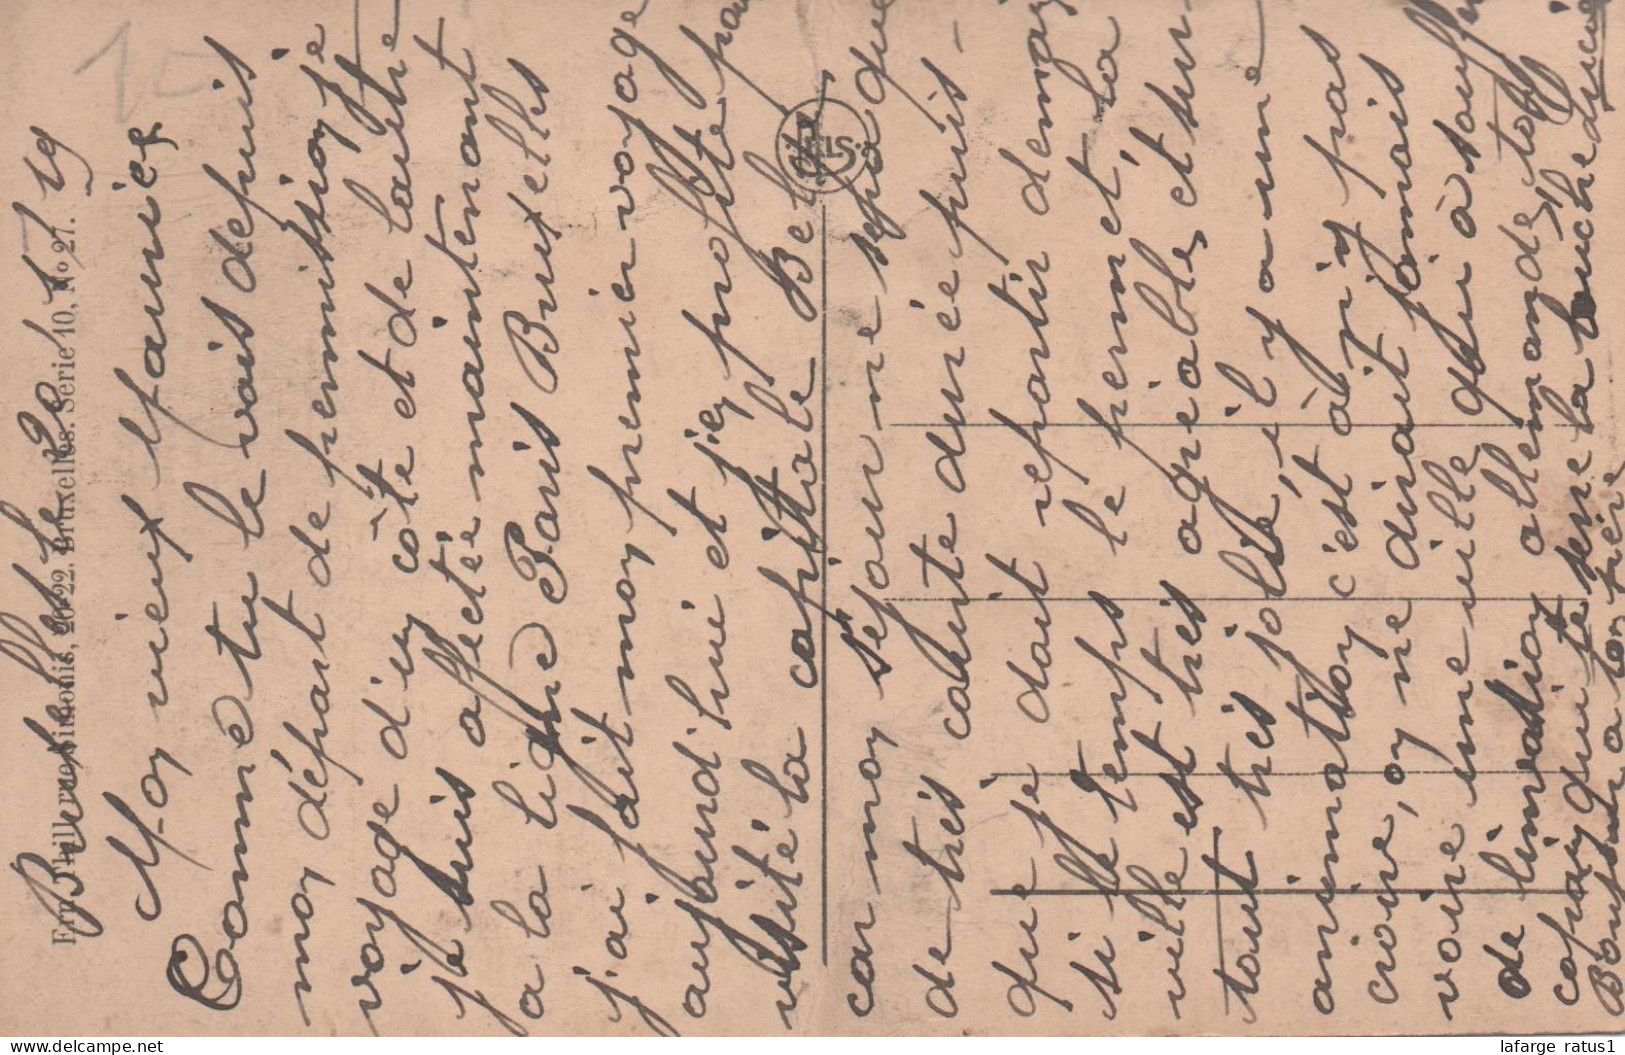 Bruxelles le 2 1 19
Mon vieux Maurice
Comme tu le vois depuis
mon départ de permission je
voyage d'un côté et de l'autre
je suis affecté maintenant
a la ligne Paris Bruxelles
j'ai fait mon premier voyage
aujourd'hui et j'en profite pour
visité la capitale Belge
car mon séjour ne sera que
de très courte durée puis-
que je doit repartir demain
si le temps le permet, la
ville est très agréable et sur-
tout très jolie, il y a une
animation c'est à n'y pas
croire, on ne dirait jamais
voire une ville qui à souffri
de l'invasion allemande, ton
copain qui te serre la
Bonjour a
Ern. Thill, rue Simonis, 20-22, Bruxelles. Serie 10, No 27.
NELS
lafarge ratus1